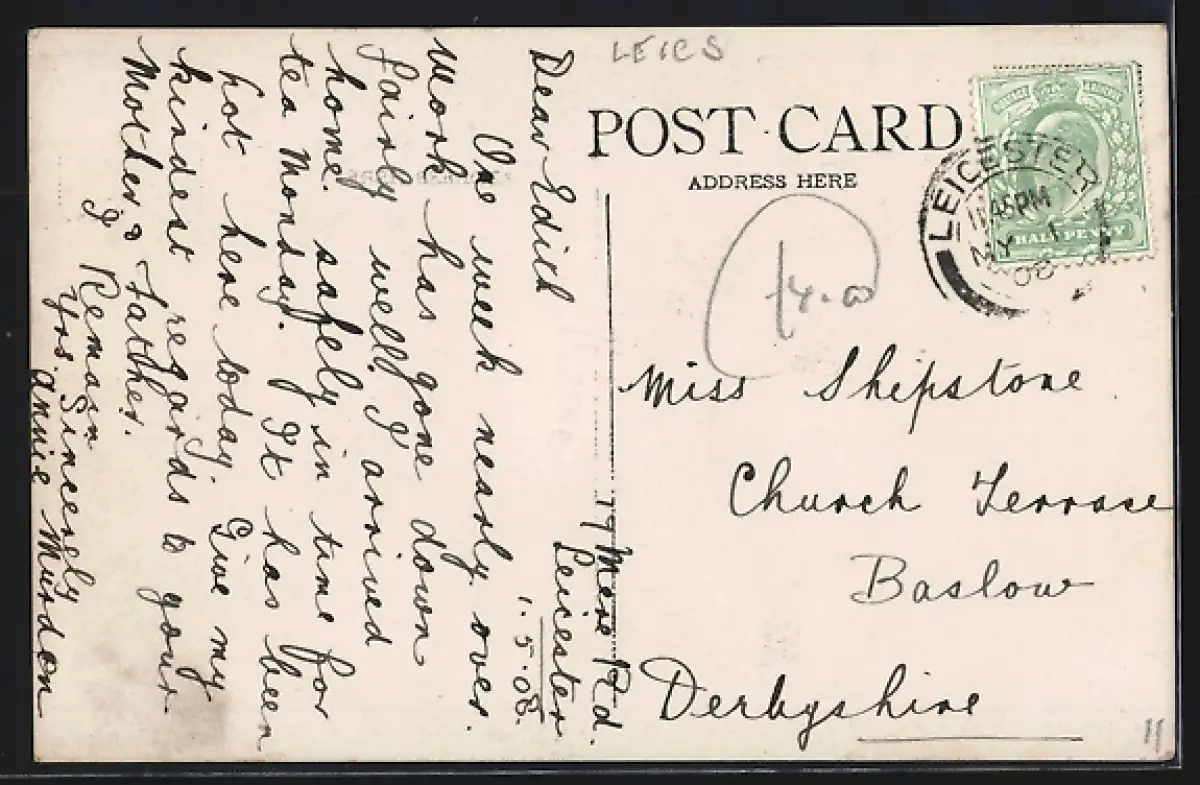 LEICS
POST CARD
ADDRESS HERE
HALFPENNY
LEICESTER
11.45PM
MY 1
08
Miss Shipstone
Church Terrase
Baslow
Derbyshire
11
17 Mere Rd.
Leicester
1.5.08.
Dear Edith
One week nearly over.
Work has gone down
fairly well. I arrived
home safely in time for
tea Monday. It has been
hot here today. Give my
kindest regards to your
Mother & Father.
I Remain
Yrs. Sincerely
Annie Murdon